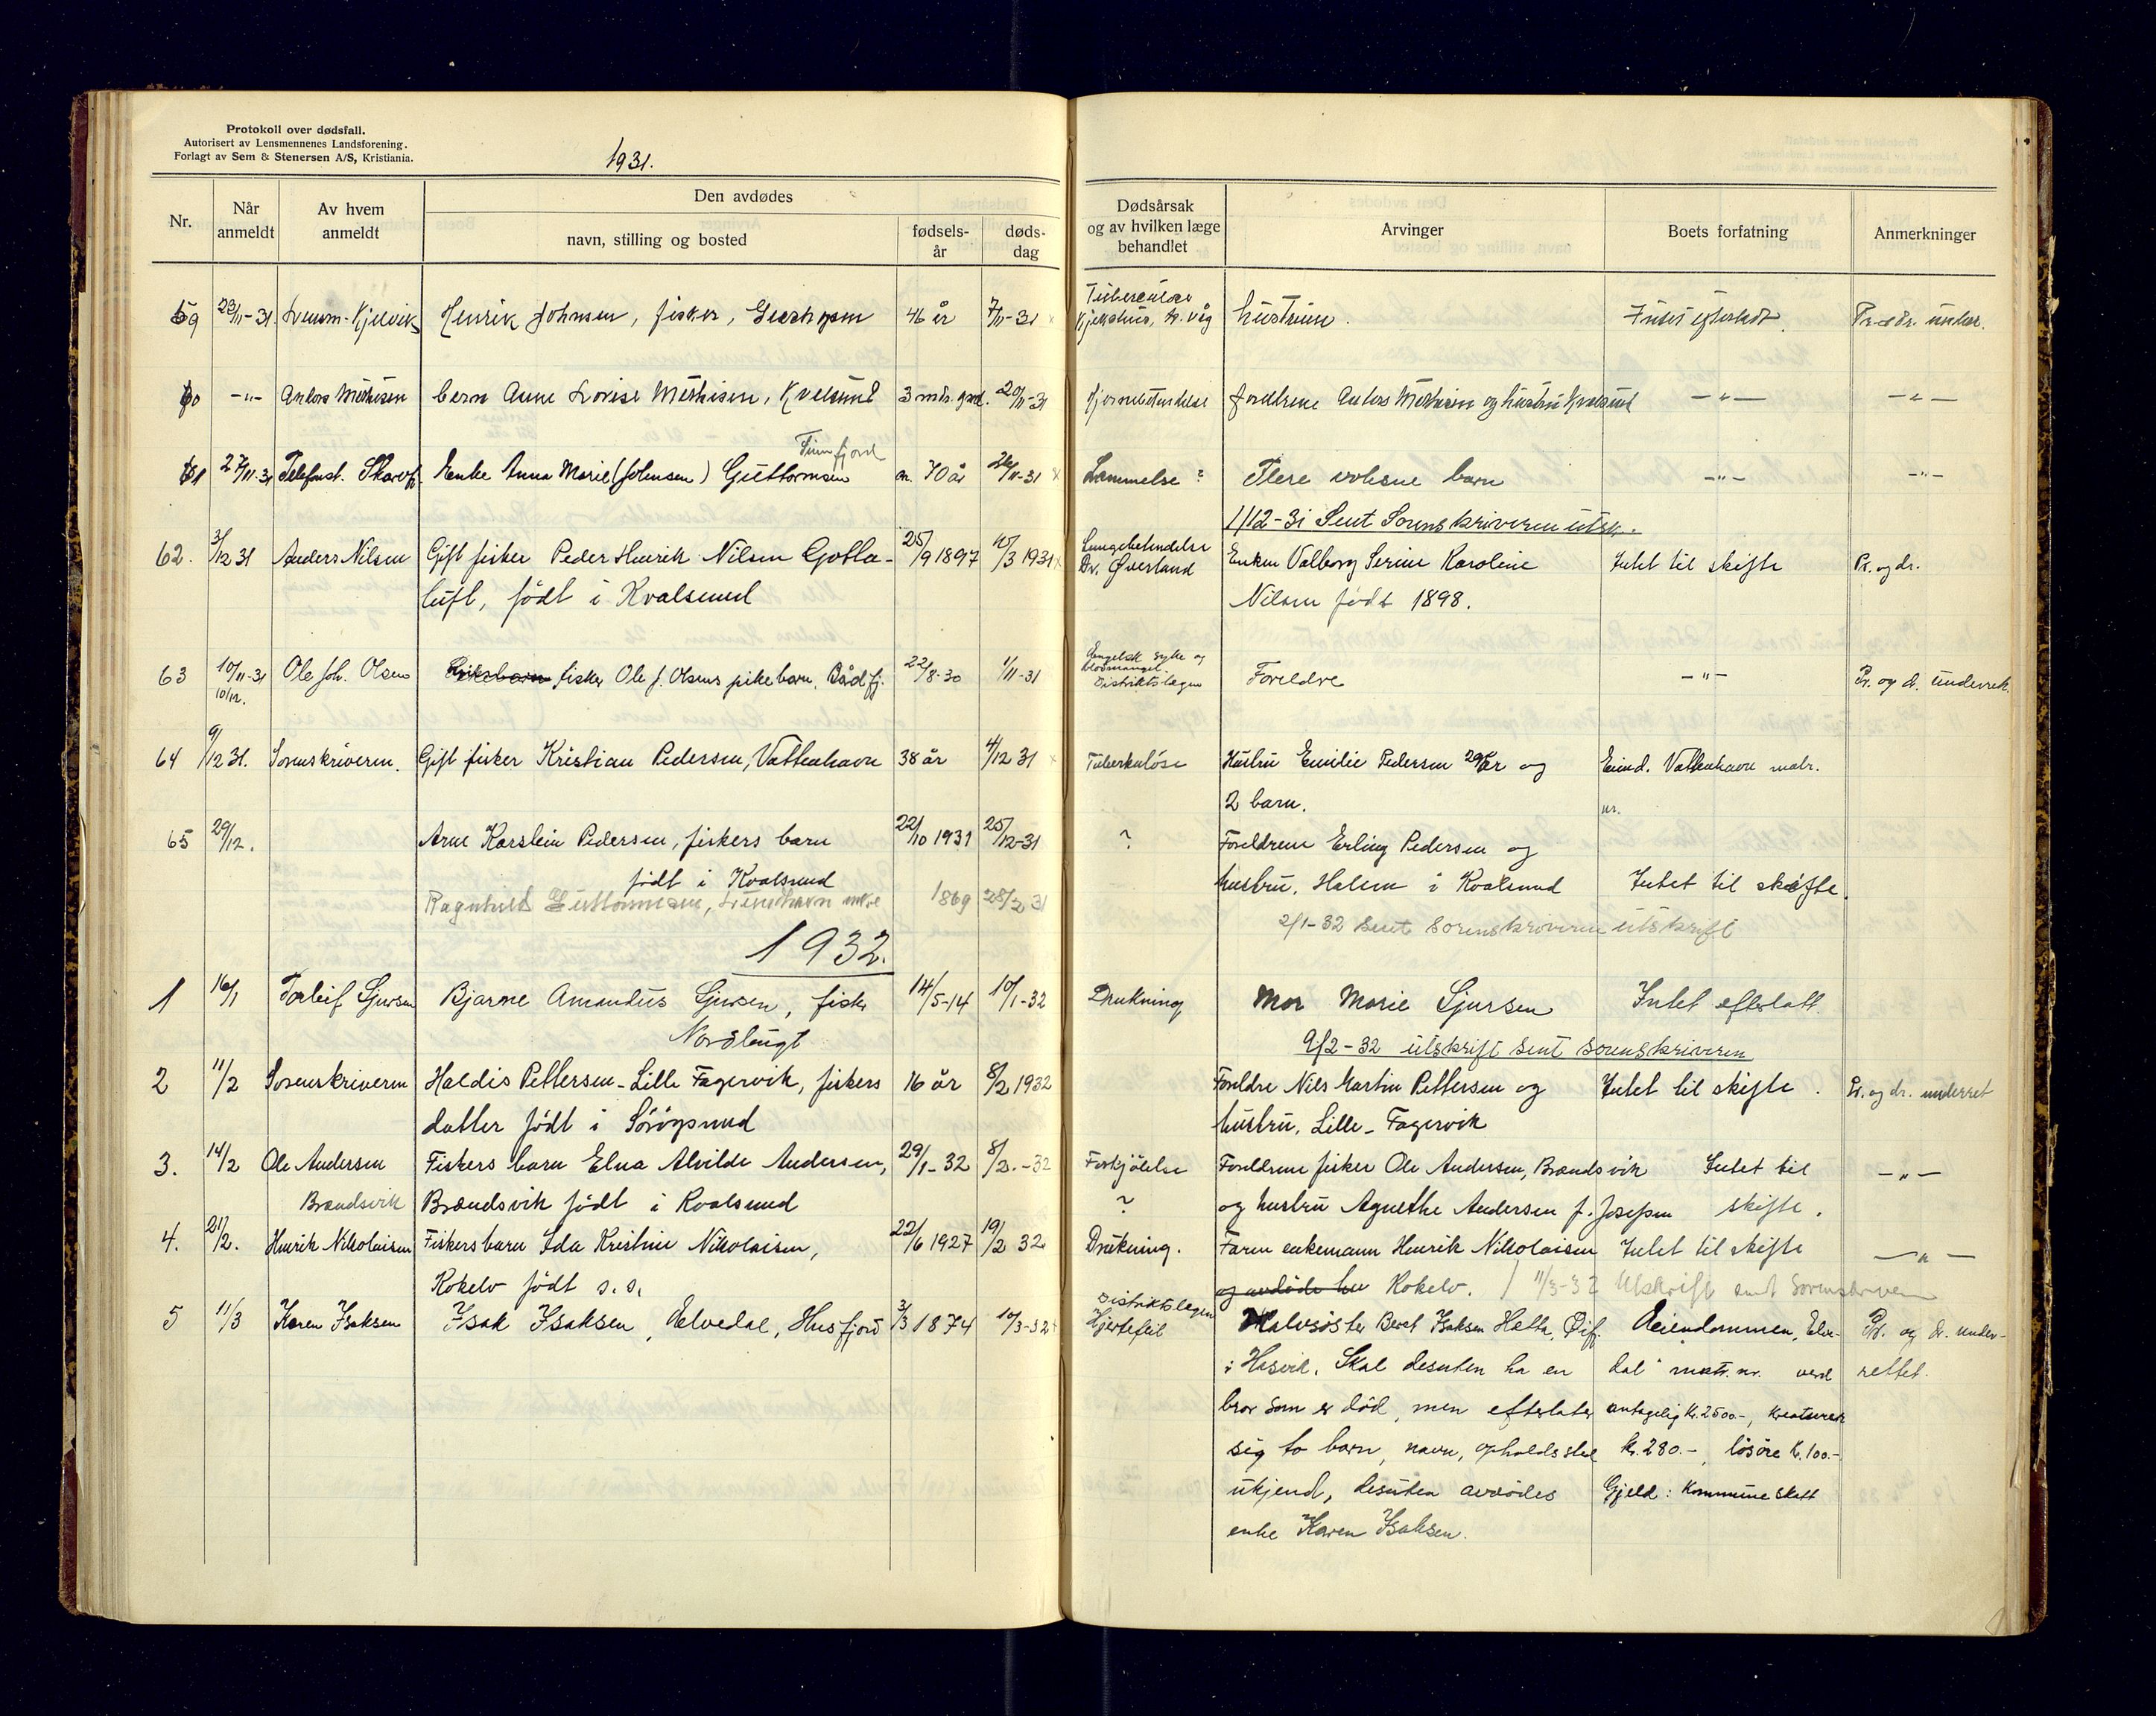 Protokoll over dødsfall.
Autorisert av Lensmennenes Landsforening.
Forlagt av Sem & Stenersen A/S, Kristiania.
1931.
Nr.
Når anmeldt
Av hvem anmeldt
Den avdødes
navn, stilling og bosted
fødsels-år
døds-dag
Dødsårsak og av hvilken læge behandlet
Arvinger
Boets forfatning
Anmerkninger
Tuberculose
59 23/11-31 Lensm. Kjelvik Henrik Johnsen, fisker, 46 år 7/11-31 hustruen. Intet efterladt. Pr. & dr. under.
60 -"- Anders Mathisen barn Anne Lovise Mathisen, Kvalsund 3 mdr. gml. 20/11-31 Hjernebetendelse foreldrene Anders Mathisen og hustru Kvalsund -"- -"-
Finnfjord
61 27/11-31 Telefonst. Skarvfj. Enke Anna Marie (Johnsen) Guttormsen 70 år 26/11-31 Lammelse? Flere voksne barn -"- -"-
1/12-31 Sent Sorenskriveren utsk.
62. 3/12 31 Anders Nilsen Gift fisker Peder Henrik Nilsen Gotta- 25/9 1897 10/3 1931 Lungebetendelse Dr. Øverland Enken Valborg Serine Karoline Intet til skifte Pr. og dr.
luft, født i Kvalsund Nilsen født 1898.
63 10/11-31 10/12. Ole Joh. Olsen fisker Ole J. Olsens pikebarn, Bådfj. 22/8-30 1/11-31 Engelsk syke og blodmangel. Distriktslægen Foreldre -"- Pr. og dr. underrek.
64 9/12 31. Sorenskriveren. Gift fisker Kristian Pedersen, Vattenhavn 38 år 4/12 31 Tuberkuløse Hustru Emilie Pedersen 29 år og Eiend. Vattenhavn matr.
2 barn. nr.
65 29/12. Arne Karstein Pedersen, fiskers barn 22/10 1931 25/12-31 ? Foreldrene Erling Pedersen og
født i Kvalsund hustru, Halsen i Kvalsund Intet til skifte.
Ragnhild Guttormsen, 1869 28/2 31
2/1-32 sent sorenskriveren utskrift
1932.
1 16/1 Torleif Sjursen Bjarne Amandus Sjursen, fisker 14/5-14 10/1-32 Drukning Mor Marie Sjursen Intet efterlatt.
Nordslugt
9/2-32 utskrift sent sorenskriveren
2 11/2 Sorenskriveren Haldis Pettersen - Lille Fagervik, fiskers 16 år 8/2 1932 Foreldre Nils Martin Pettersen og Intet til skifte. Pr. og dr. underret
datter født i Sörøysund hustru, Lille-Fagervik
3. 14/2 Ole Andersen Fiskers barn Elna Alvilde Andersen, 29/1-32 8/2.-32 Forkjølelse Foreldrene fisker Ole Andersen, Brændsvik Intet til -"-
Brændsvik Brændsvik født i Kvalsund ? og hustru Agnethe Andersen f. Josefsen skifte.
4. 21/2. Henrik Nikolaisen Fiskersbarn Ida Kristine Nikolaisen, 22/6 1927 19/2 32 Drukning. Faren enkemann Henrik Nikolaisen Intet til skifte -"-
Kokelv født s.s. og avdøde hu Kokelv. 11/3-32 Utskrift sendt Sorenskriveren
5 11/3 Karen Isaksen Isak Isaksen, Elvedal, Husfjord 3/3 1874 10/3-32 Distriktslægen Hjertefeil Halvsøster Beret Isaksen Hætta, Øifj. Eiendommen, Elve- Pr. og dr. under-
i Hasvik. Skal desuten ha en dal" matr. nr. verd rettet.
bror som er död, men efterlater antagelig kr. 2500.-, kreaturer
sig to barn, navn, opholdssted kr. 280.-, løsøre kr. 100.-
ukjend, desuten avdødes Gjeld: Kommuneskatt
enke Karen Isaksen.